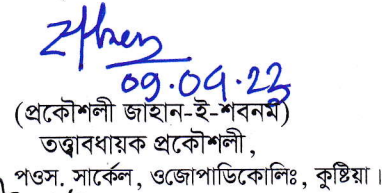 09.04.23
(প্রকৌশলী জাহান-ই-শবনম)
তত্ত্বাবধায়ক প্রকৌশলী,
পওস. সার্কেল, ওজোপাডিকোলিঃ, কুষ্টিয়া।